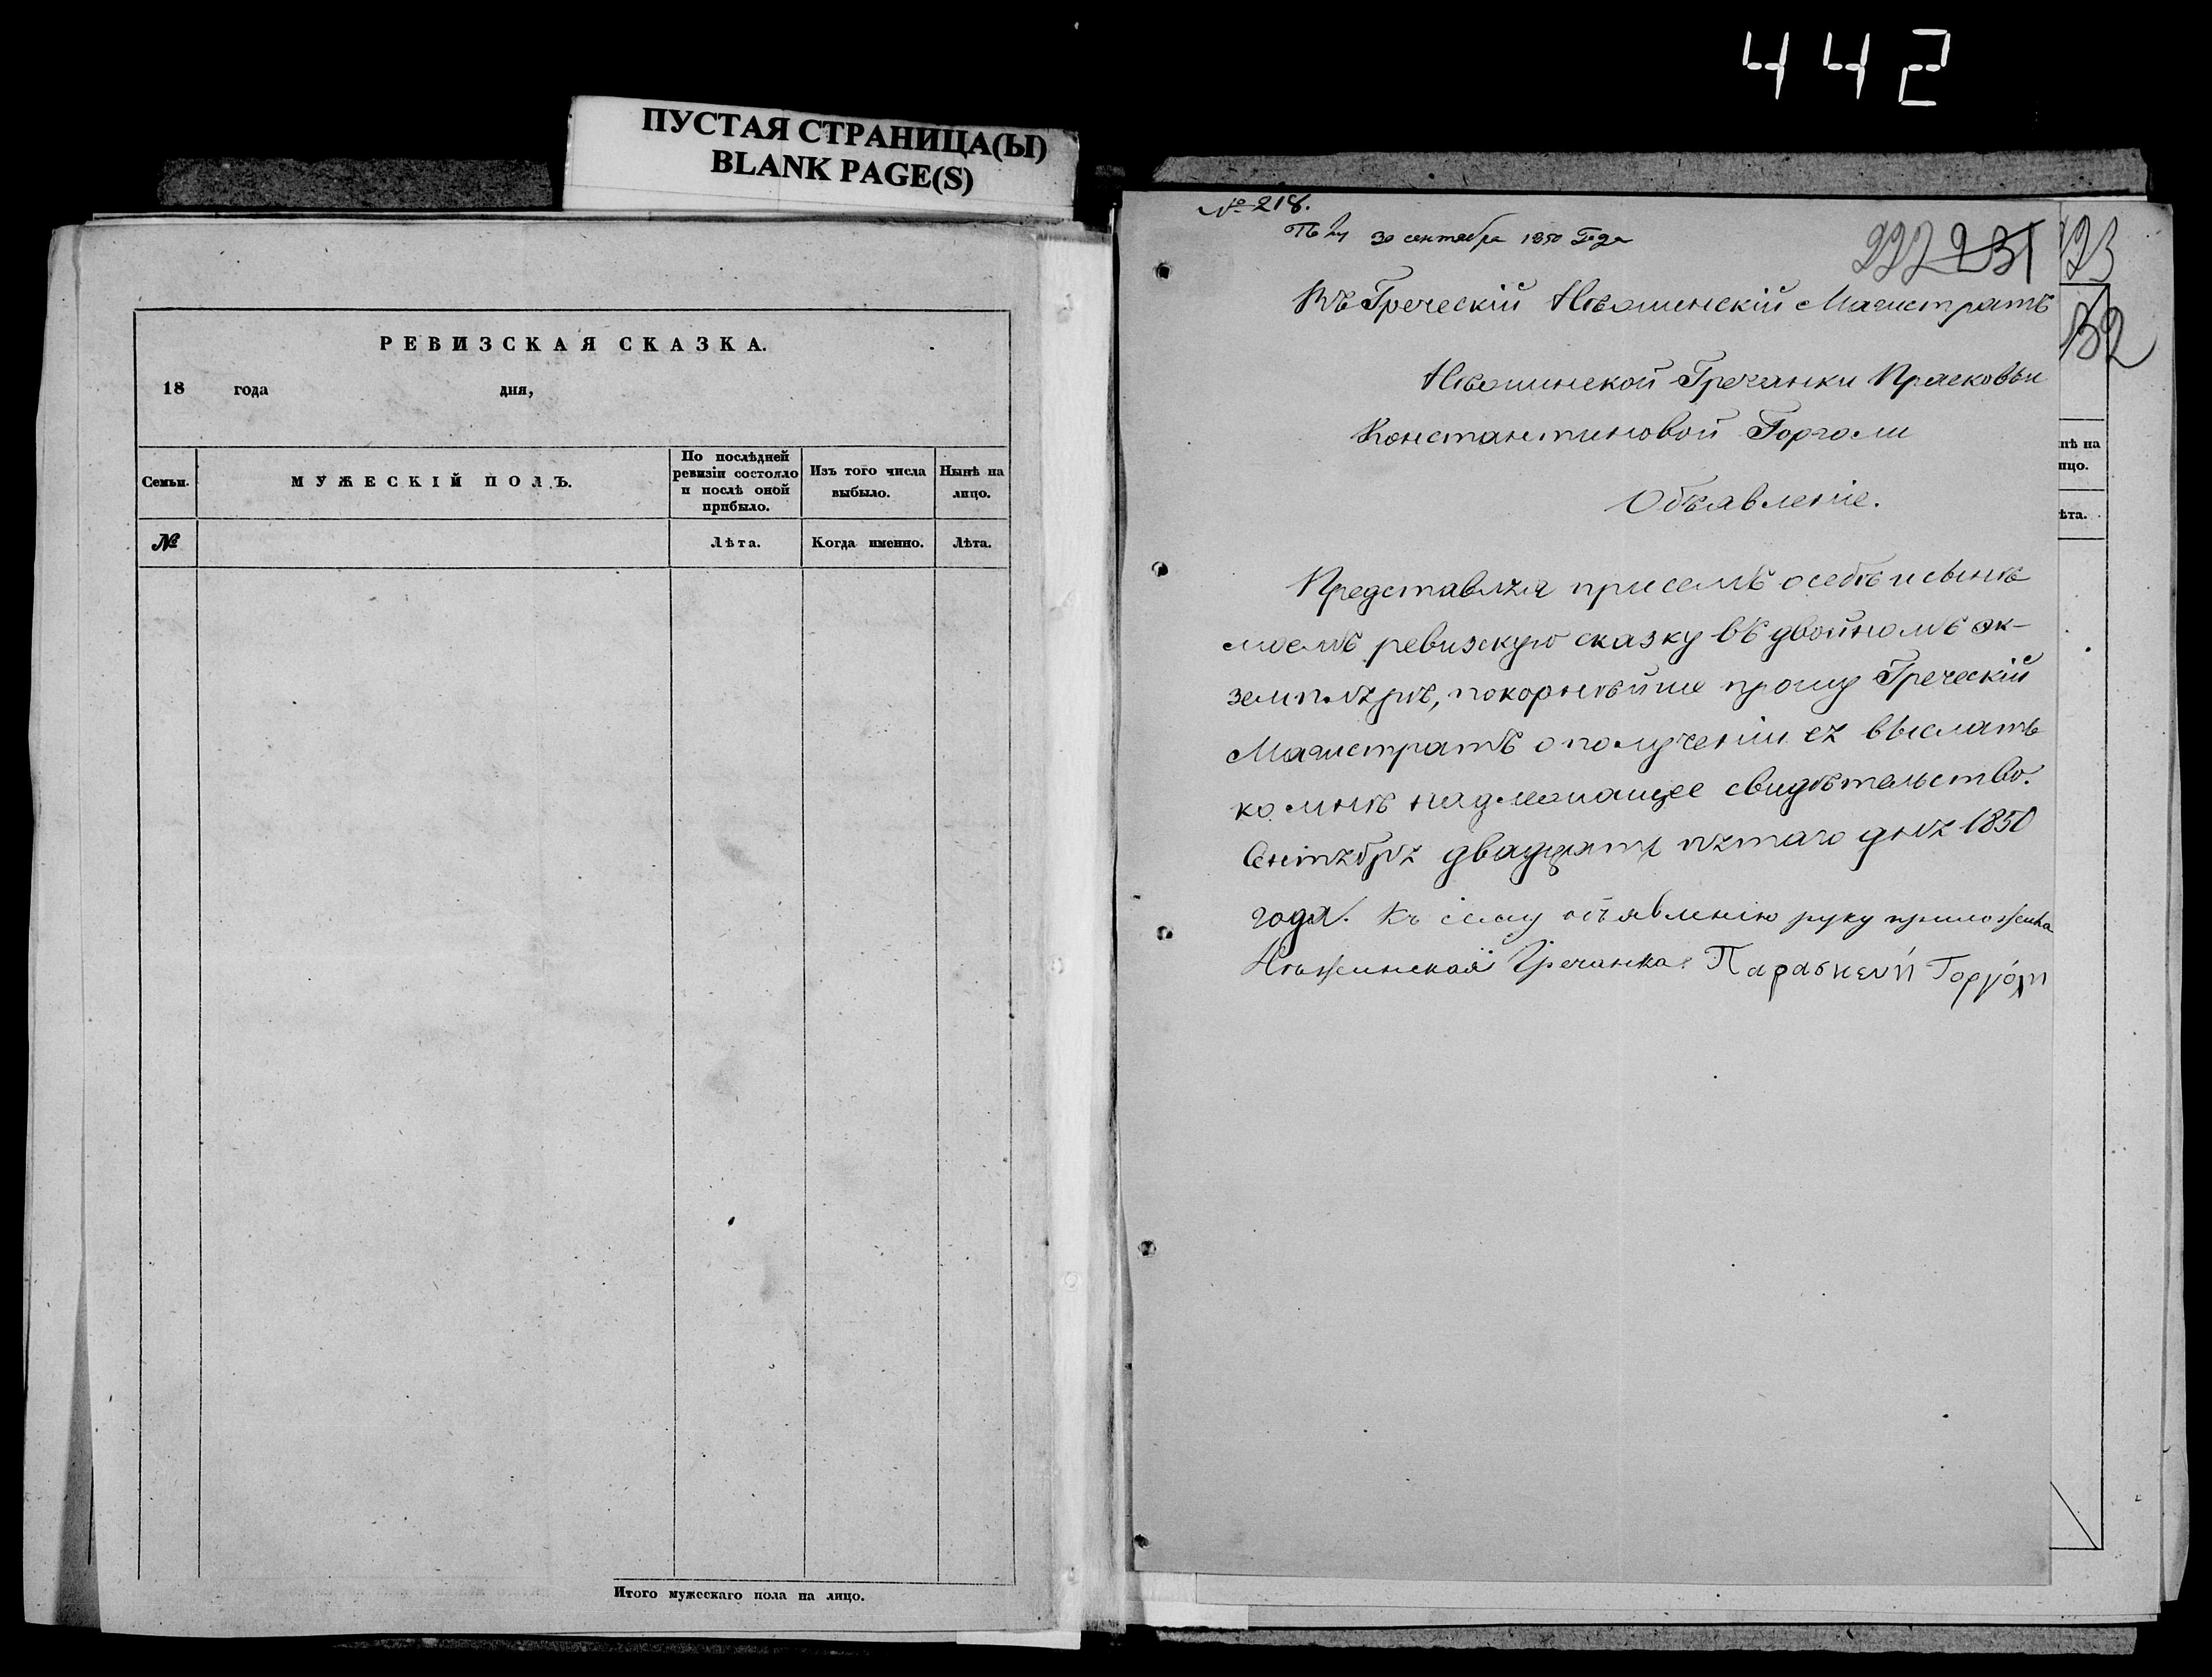 442
ПУСТАЯ СТРАНИЦА(Ы)
BLANK PAGE(S)
РЕВИЗСКАЯ СКАЗКА.
18 года дня,
Семьи. МУЖЕСКІЙ ПОЛЪ. По послѣдней ревизіи состояло и послѣ оной прибыло. Изъ того числа выбыло. Нынѣ на лицо.
№ Лѣта. Когда именно. Лѣта.
Итого мужескаго пола на лицо.
№ 218.
30 сентября 1850 Года
227 231
Въ Греческій Нѣжинскій Магистратъ
Нѣжинской Гречанки Прасковьи
Константиновой Горголи
Объявленіе.
Представляя присемъ о себѣ и сынѣ
моемъ ревизскую сказку въ двойномъ эк-
земплярѣ, покорнѣйше прошу Греческій
Магистратъ о полученіи ея выслать
ко мнѣ надлежащее свидѣтельство.
Сентября двадцать пятаго дня 1850
года. Къ сему объявленію руку приложила
Нѣжинская Гречанка: Παρασκευή Γοργόλη
32
нѣ на
ицо.
ѣта.